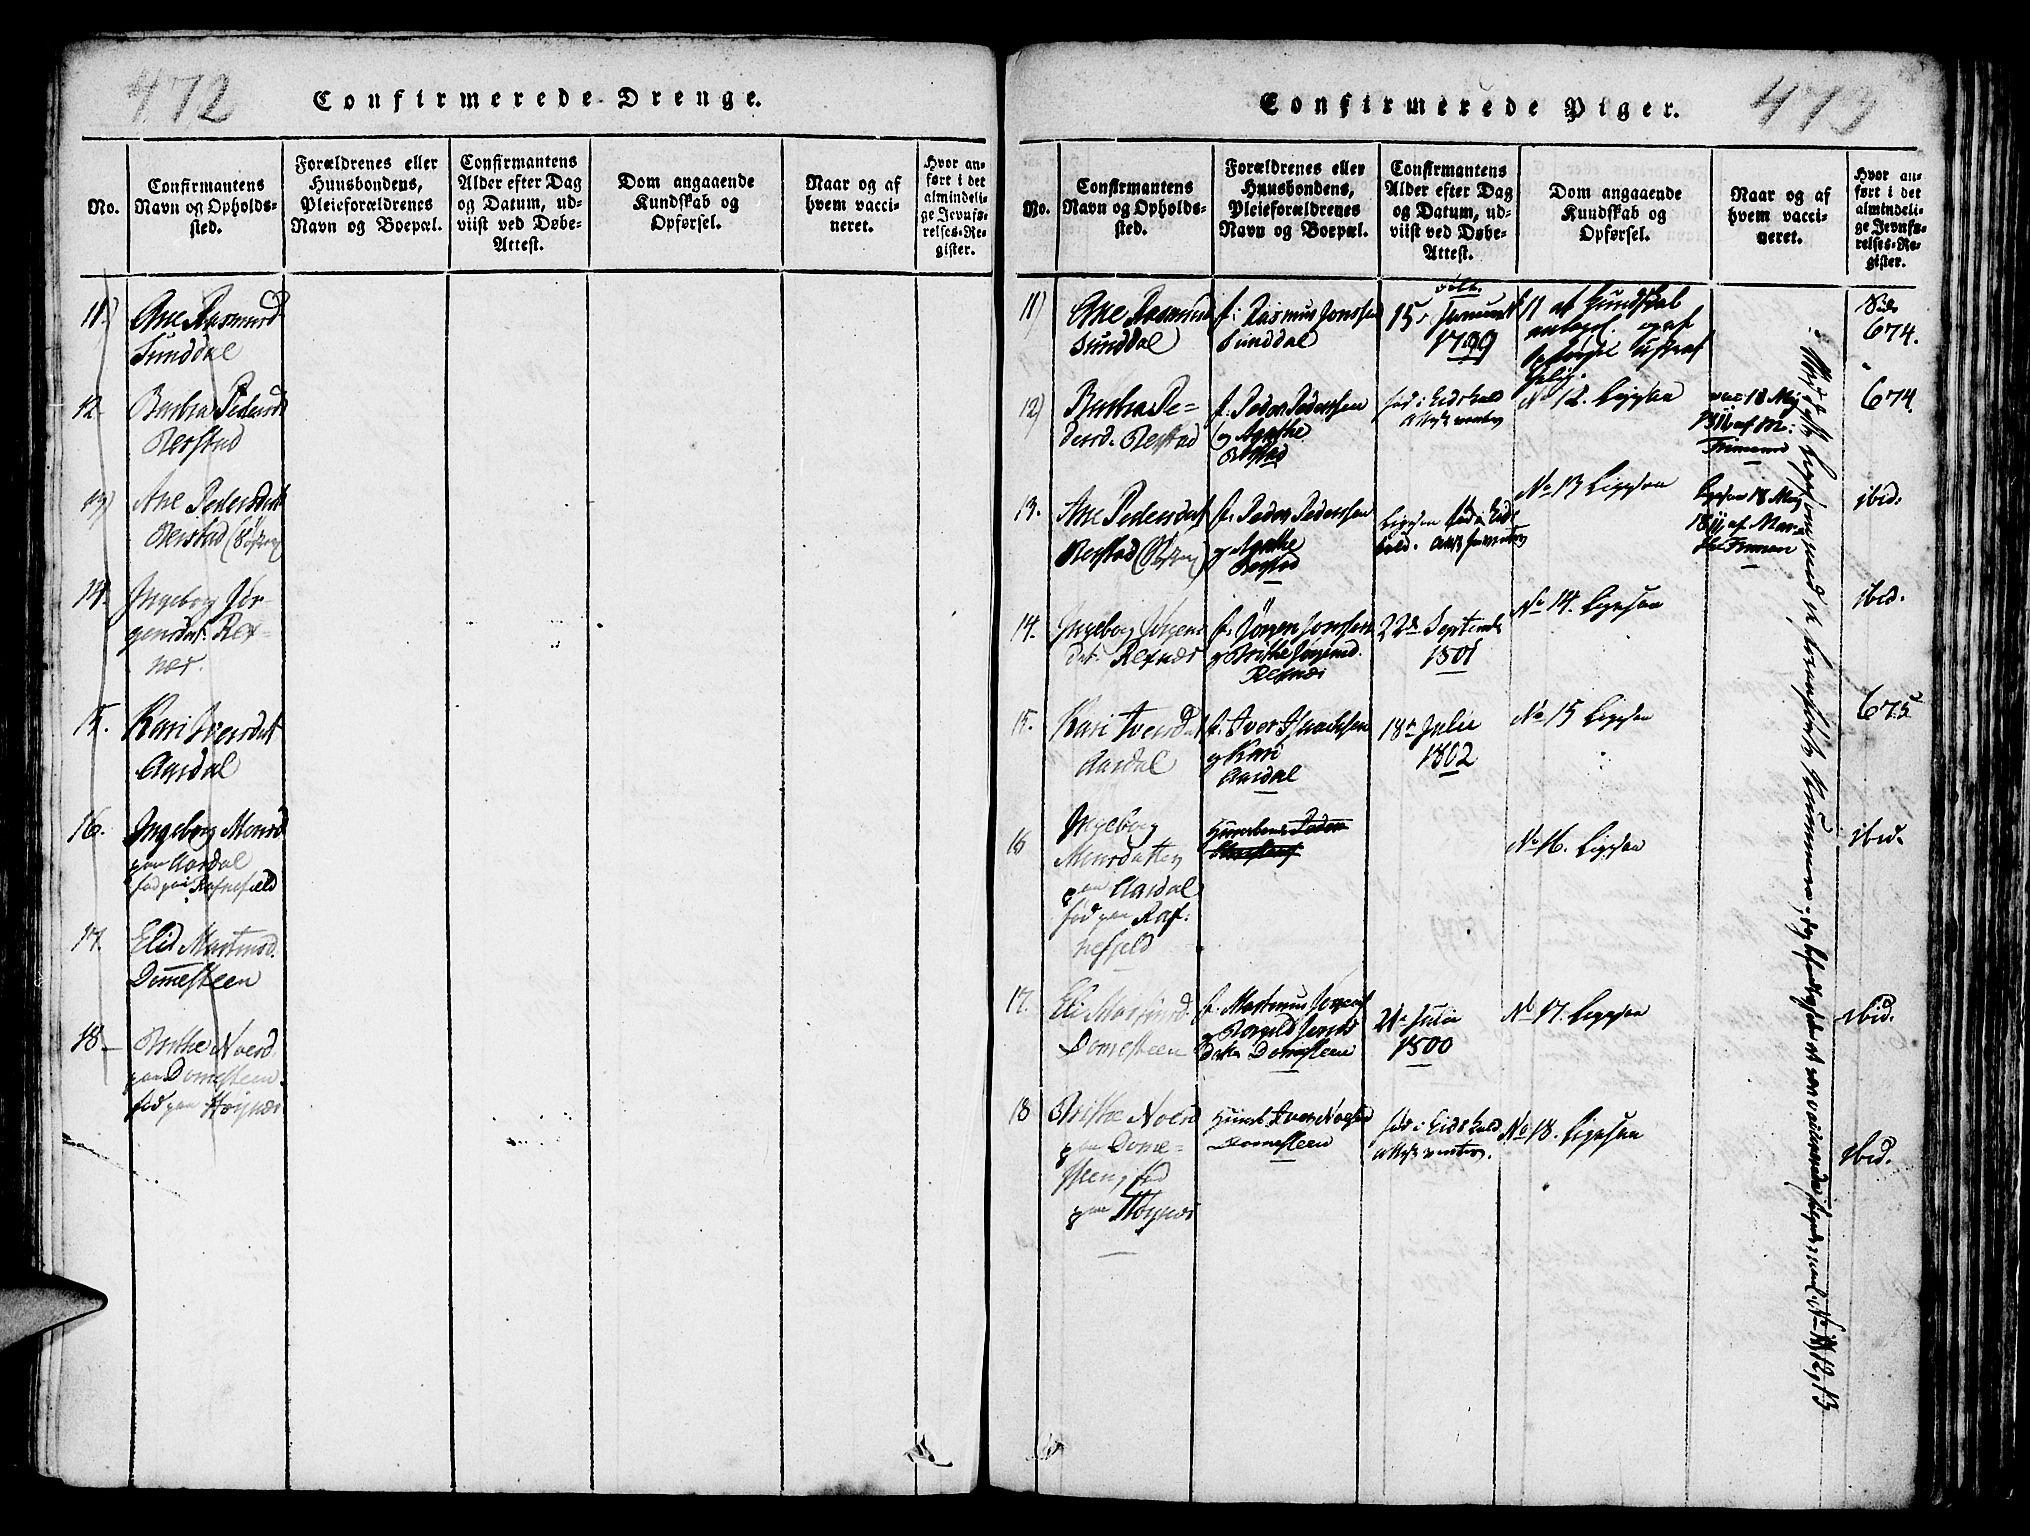 472
Confirmerede Drenge.
No.
Confirmantens
Navn og Opholds-
sted.
Forældrenes eller
Huusbondens,
Pleieforældrenes
Navn og Boepæl.
Confirmantens
Alder efter Dag
og Datum, ud-
viist ved Døbe-
Attest.
Dom angaaende
Kundskab og
Opførsel.
Naar og af
hvem vacci-
neret.
Hvor an-
ført i det
almindeli-
ge Jevnfø-
relses-Re-
gister.
11)
Ane Rasmusd
Sunddal
12.
Barbra Pedersd
Rerstad
13)
Ane Pedersdat
Rerstad
14.
Ingeborg Jør-
gensdat. Ref-
næs.
15.
Kari Iversdat
Aardal
16.
Ingeborg Monsd
paa Aardal
fød paa Rafnefield
17.
Elid Martinusd.
Domesteen
18
Brithe Noersd.
paa Domesteen.
fød paa Høynæs
473
Confirmerede Piger.
No.
Confirmantens
Navn og Opholds-
sted.
Forældrenes eller
Huusbondens,
Pleieforældrenes
Navn og Boepæl.
Confirmantens
Alder efter Dag
og Datum, ud-
viist ved Døbe-
Attest.
Dom angaaende
Kundskab og
Opførsel.
Naar og af
hvem vacci-
neret.
Hvor an-
ført i det
almindeli-
ge Jevnfø-
relses-Re-
gister.
11)
Ane Rasmusd
Sunddal
f: Rasmus Jonssen
Sunddal
15
1799
11 af Kundskab
og af
Side
674.
12)
Barbra Pe-
dersd. Rerstad
f. Peder Pederssen
og Agathe
Rerstad
fød i Eidskald
No 12. Ligesaa
vac 18 Maj
af M:
Frimann
674.
13.
Ane Pedersdat
Rerstad
f. Peder Pederssen
og Agathe
Rerstad
Ligesaa fød i Eids
kald.
No 13 Ligesaa
Ligesaa 18 Maj
af Mar-
Friman
ibid.
14.
Ingeborg Jørgens
dat. Refnæs
f. Jørgen Jonssen
og Brithe Jørgensd.
Refnæs
22de Septembr
1801
No 14. Ligesaa
ibid.
15.
Kari Iversdat
Aardal
f. Iver
og Kari
Aardal
18de Julie
1802
No 15 Ligesaa
675
16
Ingeborg
Monsdatter
paa Aardal
fød paa Raf-
nefjeld
No 16. Ligesaa
ibid.
17.
Eli Martinusd.
Domesteen
f. Martinus
datter Domesteen
21de Julie
1800
No 17. Ligesaa
ibid.
18
Brithe Noersd
paa Dome-
steen, fød
paa Høynæs
Iver
Domesteen
fød i Eidskald
No 18. Ligesaa
ibid.